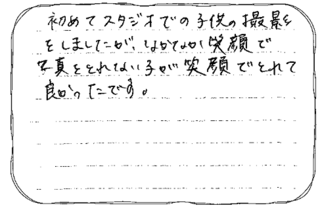 初めてスタジオでの子供の撮影を
をしましたが、なかなか笑顔で
写真をとれない子が笑顔でとれて
良かったです。